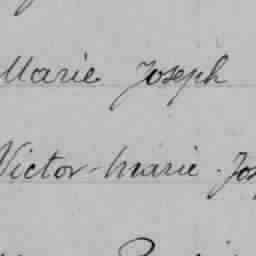 Marie Joseph
Victor-Marie. Jos